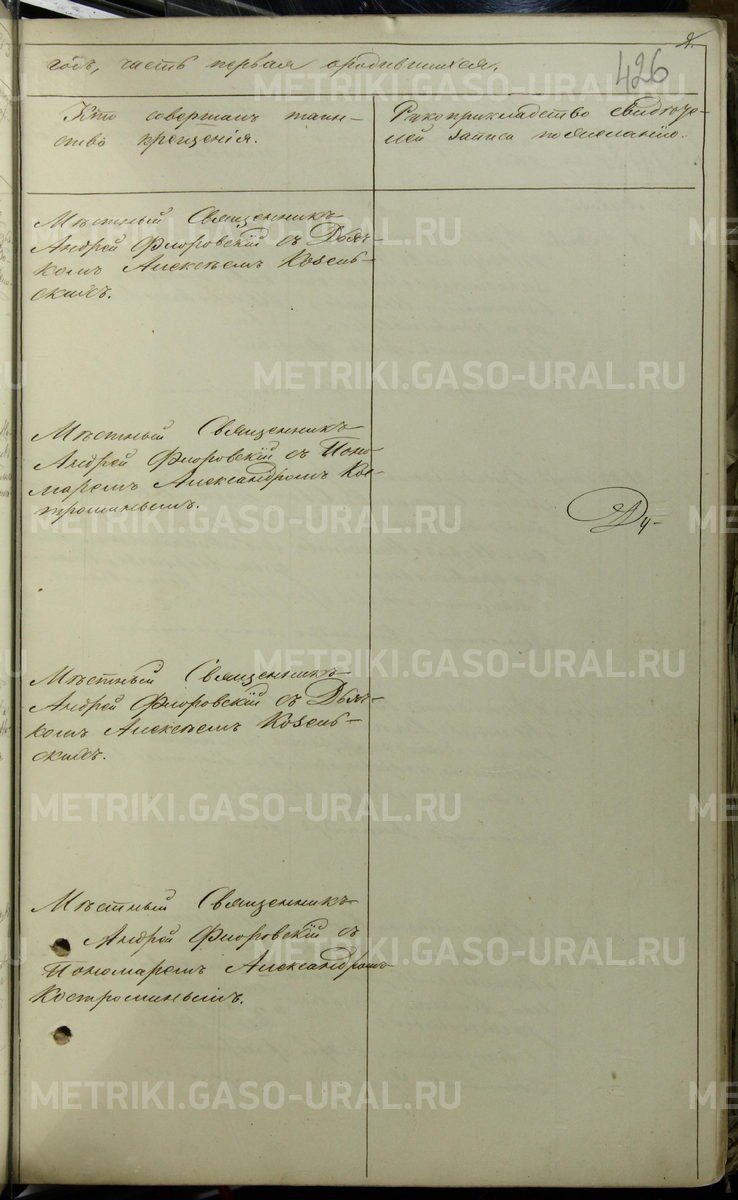 426
годъ, часть первая о родившихся.
Кто совершалъ таин-
ство крещенія.
Рукоприкладство свидѣте-
лей записи по желанію.
Мѣстный Священникъ
Андрей Флоровскій съ Дьяч-
комъ Алексѣемъ Козель-
скимъ.
Мѣстный Священникъ
Андрей Флоровскій съ Поно-
маремъ Александромъ Кос-
троминымъ.
Мѣстный Священникъ
Андрей Флоровскій съ Дьяч-
комъ Алексѣемъ Козель-
скимъ.
Мѣстный Священникъ
Андрей Флоровскій съ
Пономаремъ Александромъ
Костроминымъ.
METRIKI.GASO-URAL.RU